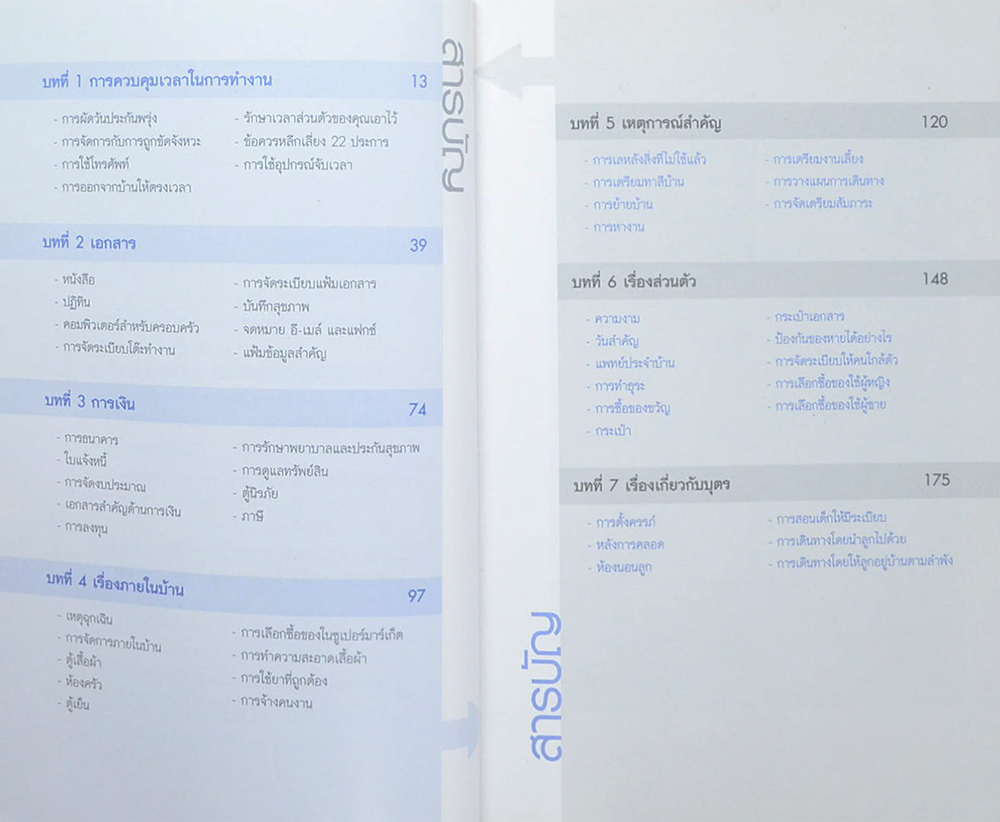 สารบัญ
บทที่ 1 การควบคุมเวลาในการทำงาน 13
- การผัดวันประกันพรุ่ง
- การจัดการกับการถูกขัดจังหวะ
- การใช้โทรศัพท์
- การออกจากบ้านให้ตรงเวลา
- รักษาเวลาส่วนตัวของคุณเอาไว้
- ข้อควรหลีกเลี่ยง 22 ประการ
- การใช้อุปกรณ์จับเวลา
บทที่ 2 เอกสาร 39
- หนังสือ
- ปฏิทิน
- คอมพิวเตอร์สำหรับครอบครัว
- การจัดระเบียบโต๊ะทำงาน
- การจัดระเบียบแฟ้มเอกสาร
- บันทึกสุขภาพ
- จดหมาย อี-เมล์ และแฟกซ์
- แฟ้มข้อมูลสำคัญ
บทที่ 3 การเงิน 74
- การธนาคาร
- ใบแจ้งหนี้
- การจัดงบประมาณ
- เอกสารสำคัญด้านการเงิน
- การลงทุน
- การรักษาพยาบาลและประกันสุขภาพ
- การดูแลทรัพย์สิน
- ตู้นิรภัย
- ภาษี
บทที่ 4 เรื่องภายในบ้าน 97
- เหตุฉุกเฉิน
- การจัดการภายในบ้าน
- ตู้เสื้อผ้า
- ห้องครัว
- ตู้เย็น
- การเลือกซื้อของในซูเปอร์มาร์เก็ต
- การทำความสะอาดเสื้อผ้า
- การใช้ยาที่ถูกต้อง
- การจ้างคนงาน
สารบัญ
บทที่ 5 เหตุการณ์สำคัญ 120
- การเลหลังสิ่งที่ไม่ใช้แล้ว
- การเตรียมทาสีบ้าน
- การย้ายบ้าน
- การหางาน
- การเตรียมงานเลี้ยง
- การวางแผนการเดินทาง
- การจัดเตรียมสัมภาระ
บทที่ 6 เรื่องส่วนตัว 148
- ความงาม
- วันสำคัญ
- แพทย์ประจำบ้าน
- การทำธุระ
- การซื้อของขวัญ
- กระเป๋า
- กระเป๋าเอกสาร
- ป้องกันของหายได้อย่างไร
- การจัดระเบียบให้คนใกล้ตัว
- การเลือกซื้อของใช้ผู้หญิง
- การเลือกซื้อของใช้ผู้ชาย
บทที่ 7 เรื่องเกี่ยวกับบุตร 175
- การตั้งครรภ์
- หลังการคลอด
- ห้องนอนลูก
- การสอนเด็กให้มีระเบียบ
- การเดินทางโดยนำลูกไปด้วย
- การเดินทางโดยให้ลูกอยู่บ้านตามลำพัง